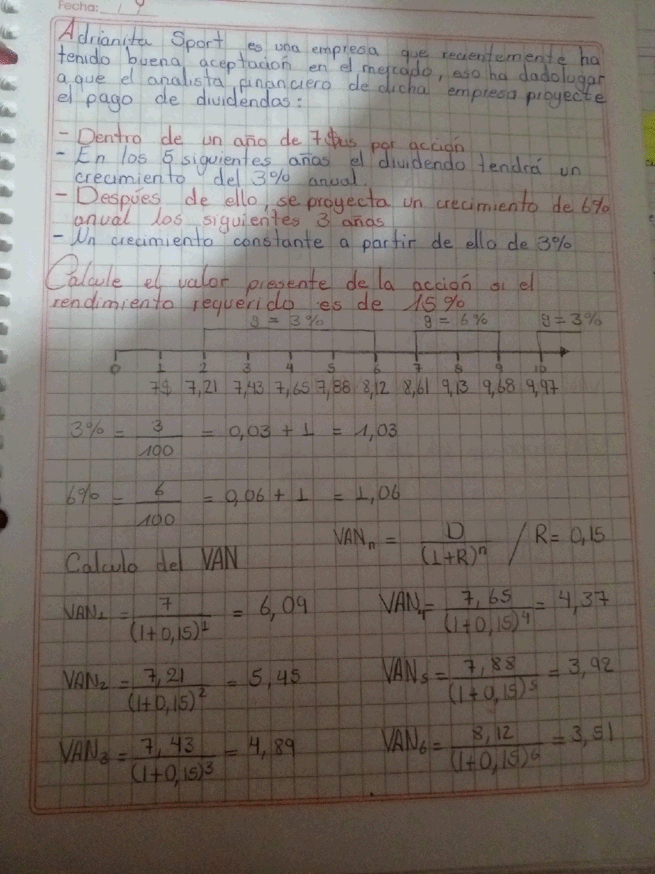 Fecha:
Adrianita Sport es una empresa que recientemente ha
tenido buena aceptación en el mercado, eso ha dado lugar
a que el analista financiero de dicha empresa proyecte
el pago de dividendos:
- Dentro de un año de 7$us por acción
- En los 5 siguientes años el dividendo tendrá un
crecimiento del 3% anual.
- Después de ello, se proyecta un crecimiento de 6%
anual los siguientes 3 años
- Un crecimiento constante a partir de ello de 3%
Calcule el valor presente de la acción si el
rendimiento requerido es de 15%
g = 3% g = 6% g = 3%
0 1 2 3 4 5 6 7 8 9 10
7$ 7,21 7,43 7,65 7,88 8,12 8,61 9,13 9,68 9,97
3% = 3/100 = 0,03 + 1 = 1,03
6% = 6/100 = 0,06 + 1 = 1,06
VANn = D/(1+R)^n / R = 0,15
Calculo del VAN
VAN1 = 7/(1+0,15)^1 = 6,09 VAN4 = 7,65/(1+0,15)^4 = 4,37
VAN2 = 7,21/(1+0,15)^2 = 5,45 VAN5 = 7,88/(1+0,15)^5 = 3,92
VAN3 = 7,43/(1+0,15)^3 = 4,89 VAN6 = 8,12/(1+0,15)^6 = 3,51